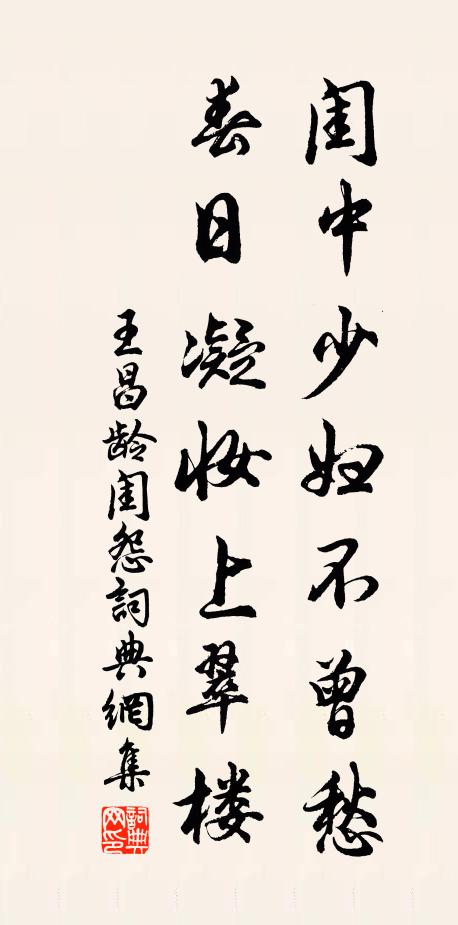 闺中少妇不曾愁
春日凝妆上翠楼
王昌龄闺怨詞典網集
詞典网印